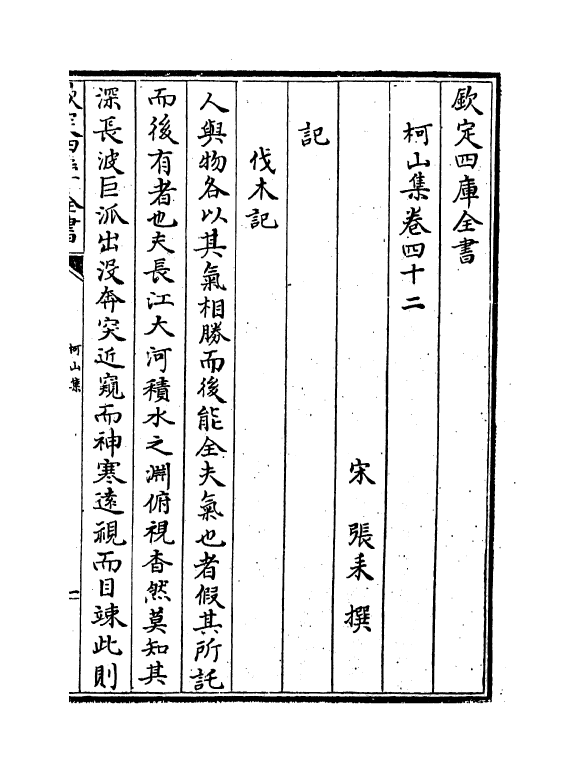 欽定四庫全書
柯山集卷四十二
宋 張耒 撰
記
伐木記
人與物各以其氣相勝而後能全夫氣也者假其所託
而後有者也夫長江大河積水之淵俯視杳然莫知其
深長波巨派出没奔突近窺而神寒遠視而目竦此則
欽定四庫全書
柯山集
一